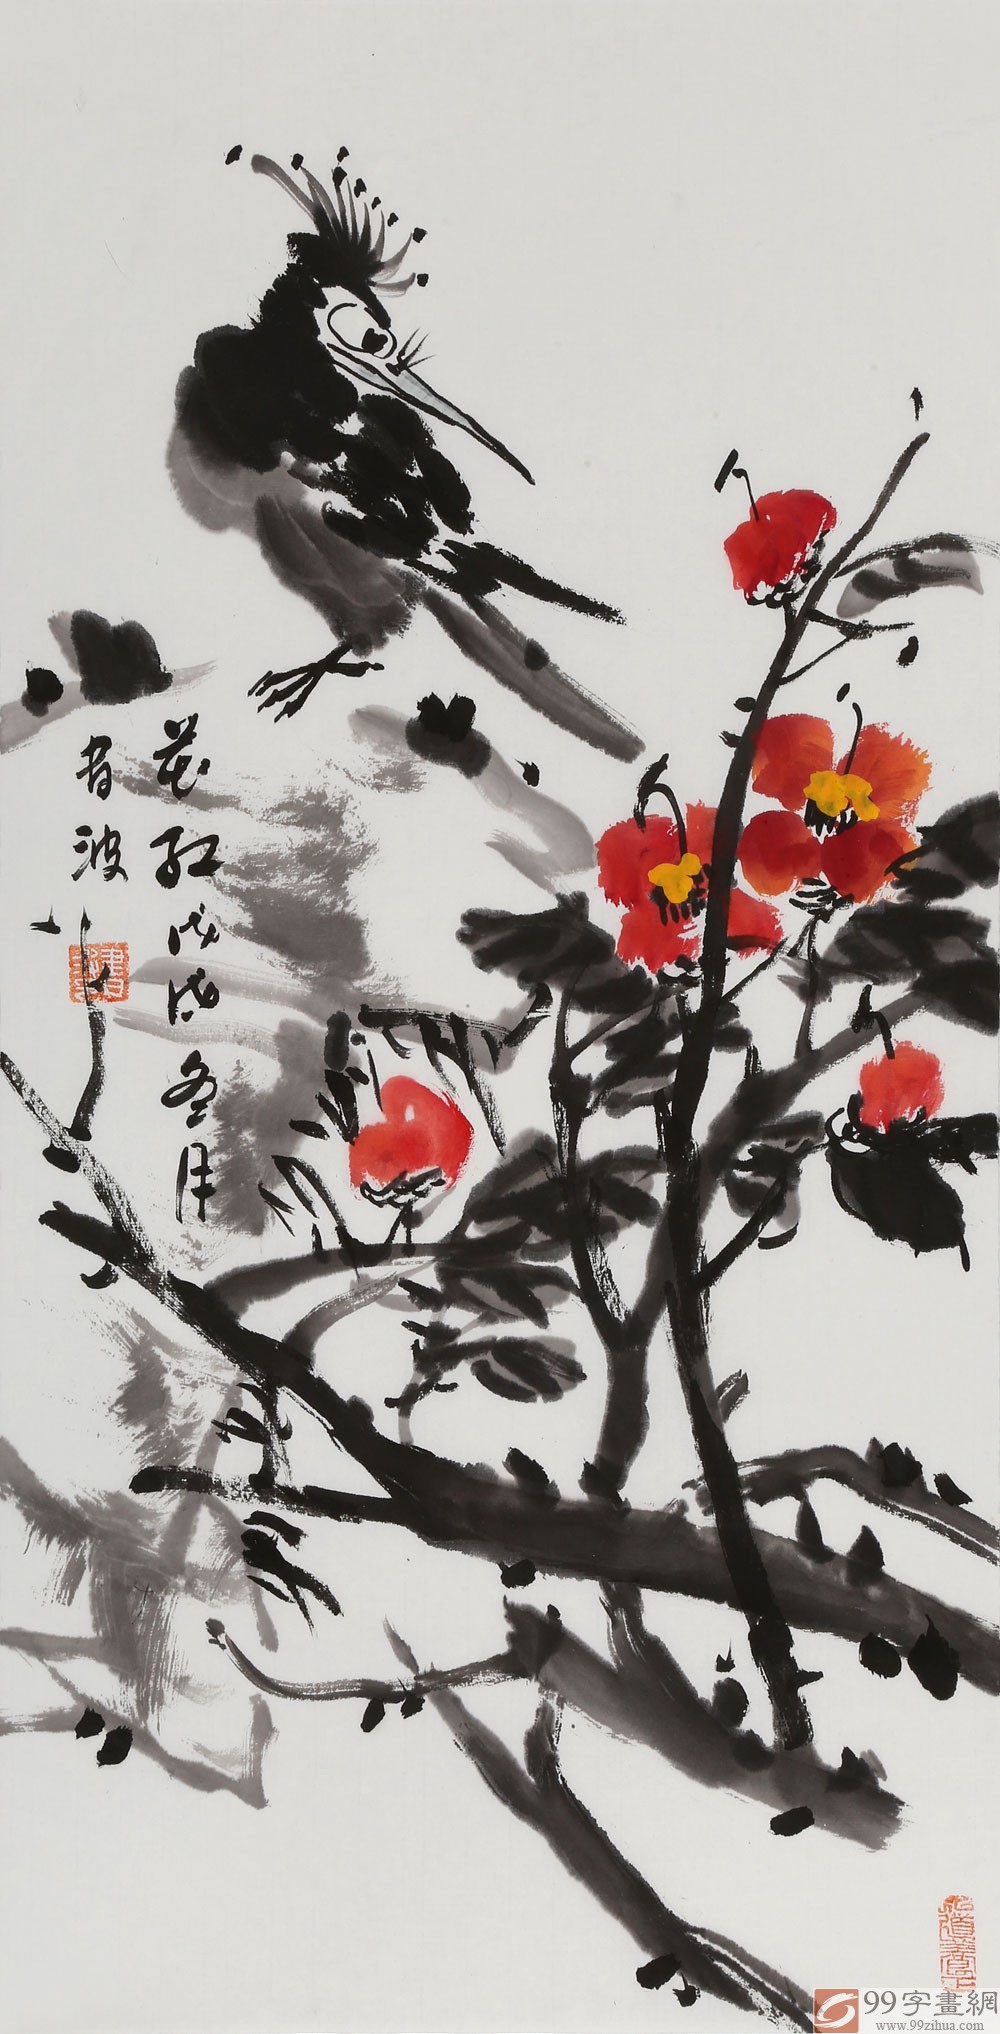 花红戊戌冬月
春波
99字畫網
www.99zihua.com